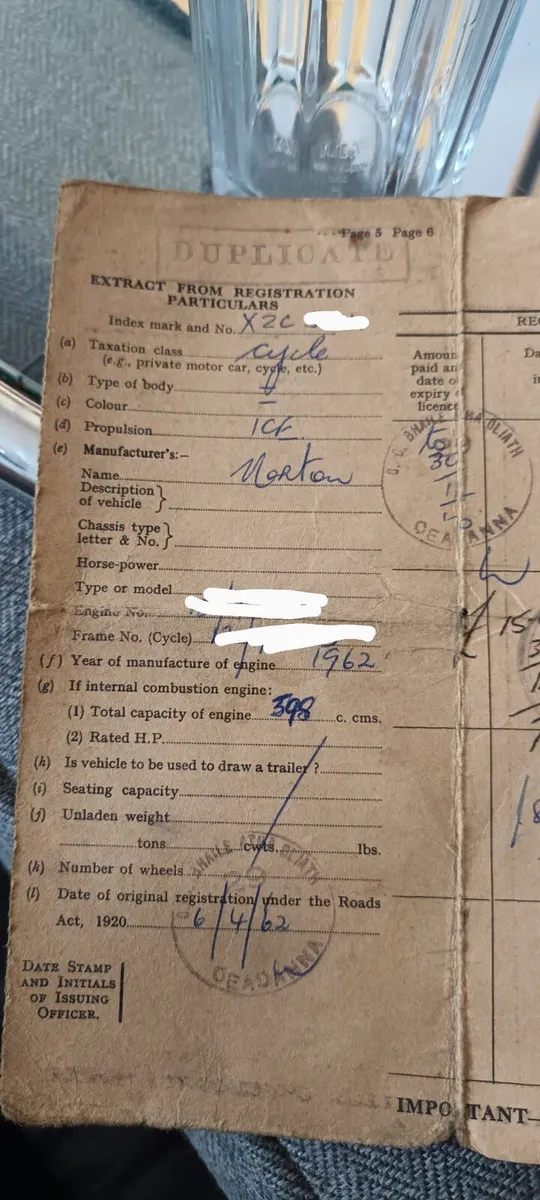 Page 5 Page 6
DUPLICATE
EXTRACT FROM REGISTRATION
PARTICULARS
Index mark and No. XZC
(a) Taxation class cycle
(e.g., private motor car, cycle, etc.)
(b) Type of body
(c) Colour
(d) Propulsion ICE
(e) Manufacturer's:—
Name Norton
Description
of vehicle
Chassis type
letter & No.
Horse-power
Type or model
Engine No.
Frame No. (Cycle)
(f) Year of manufacture of engine 1962
(g) If internal combustion engine:
(1) Total capacity of engine 398 c. cms.
(2) Rated H.P.
(h) Is vehicle to be used to draw a trailer?
(i) Seating capacity
(j) Unladen weight
tons cwts. lbs.
(k) Number of wheels
(l) Date of original registration under the Roads
Act, 1920 6/4/62
BHAILE ATHA CLIATH
CEADANNA
DATE STAMP
AND INITIALS
OF ISSUING
OFFICER.
RE
Amoun
paid an
date o
expiry
licence
Da
i
CLIATH
CEADANNA
15
IMPORTANT—